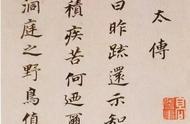 太傅
日昨踈還示知
積疾苦何迺爾
洞庭之野鳥